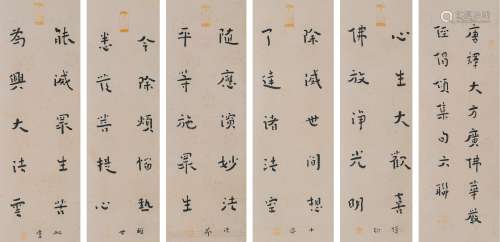 唐譯大方廣佛華嚴
經偈頌集句六聯
心生大歡喜
佛放淨光明
除滅世間想
了達諸法空
隨應演妙法
平等施眾生
令除煩惱熱
悉發菩提心
能滅眾生苦
為興大法雲